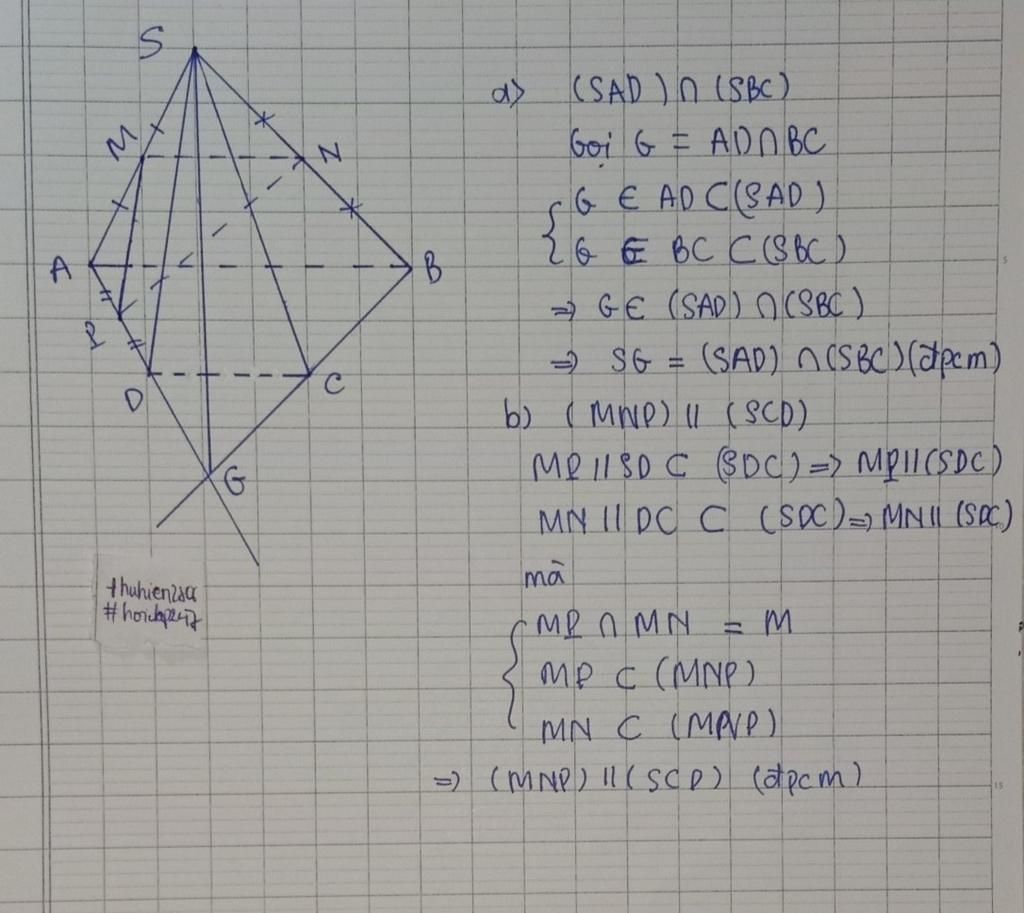 S
M
N
A
B
P
D
C
G
a) (SAD) ∩ (SBC)
Gọi G = AD ∩ BC
G ∈ AD ⊂ (SAD)
G ∈ BC ⊂ (SBC)
⇒ G ∈ (SAD) ∩ (SBC)
⇒ SG = (SAD) ∩ (SBC) (đpcm)
b) (MNP) // (SCD)
MP // SD ⊂ (SDC) ⇒ MP // (SDC)
MN // DC ⊂ (SDC) ⇒ MN // (SDC)
mà
MP ∩ MN = M
MP ⊂ (MNP)
MN ⊂ (MNP)
⇒ (MNP) // (SCD) (đpcm)
5
15